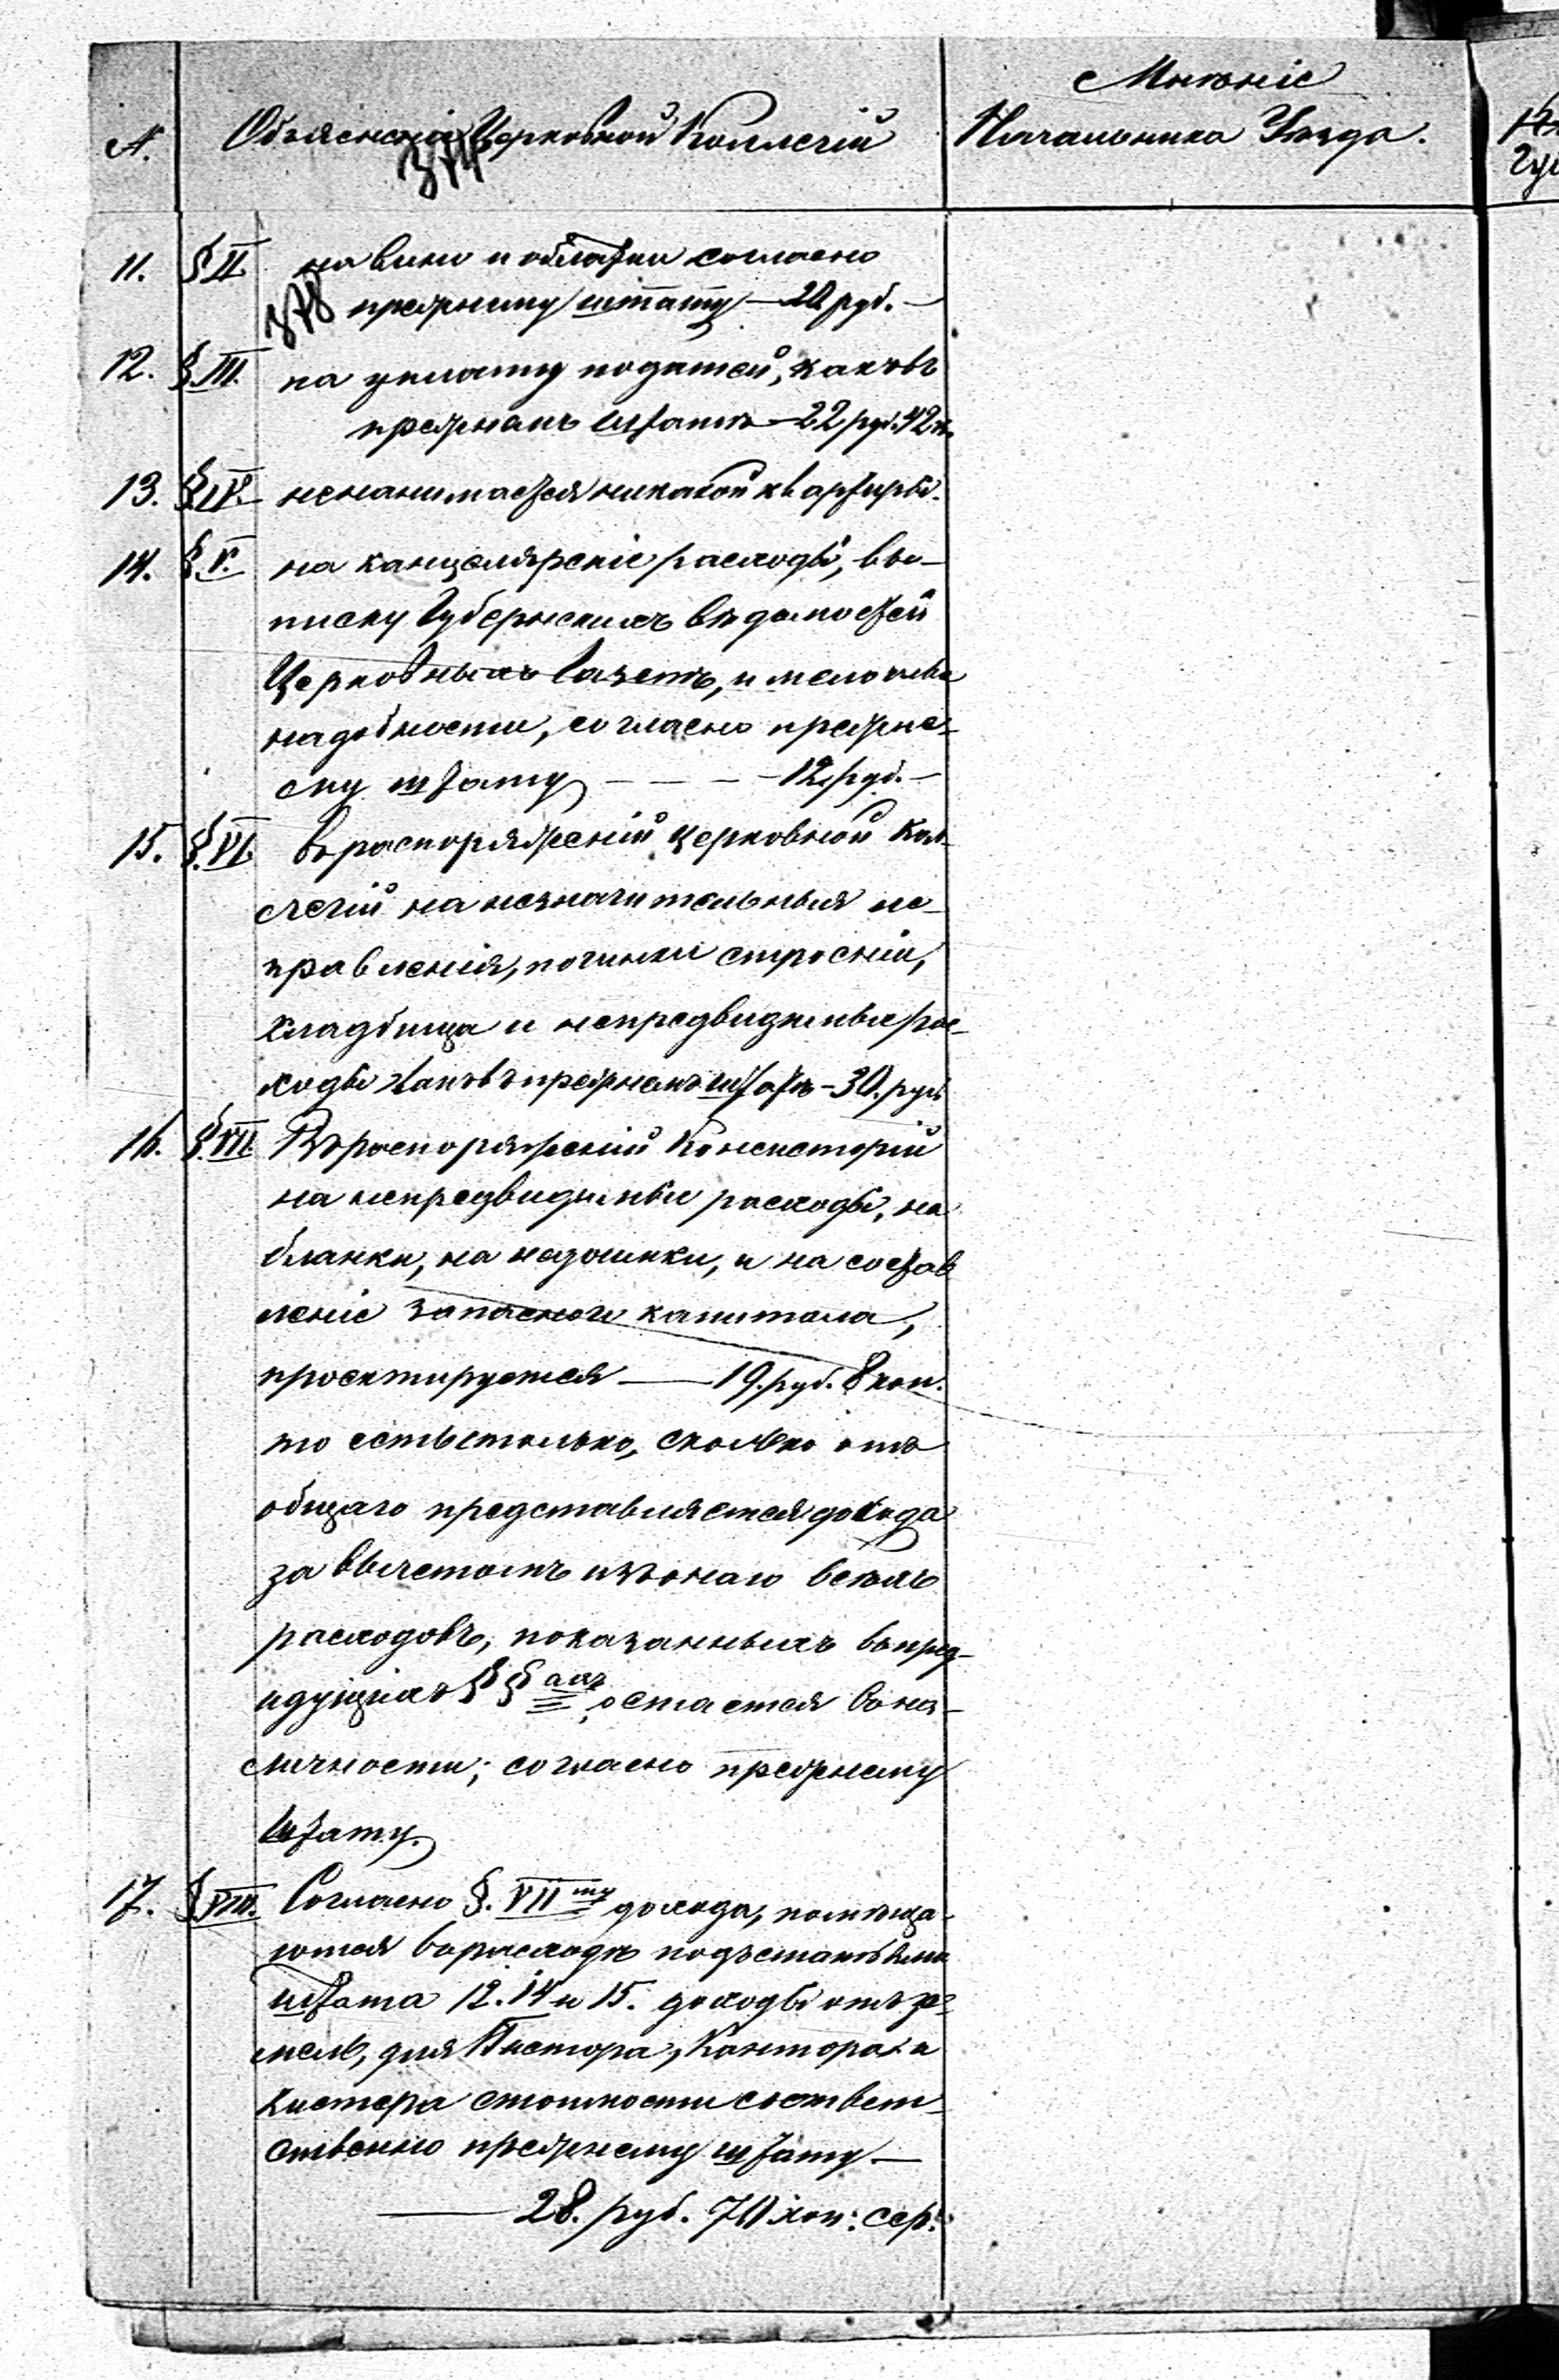 Мнѣніе
№. Объясненія Церковной Коллегіи Начальника Уѣзда.
374
11. § II на вино и облатки согласно
378 прежнему штату — 20 руб. —
12. § III. на уплату податей, какъ въ
прежнемъ штатѣ — 22 руб. 42 к.
13. § IV. не нанимается никакой квартиры.
14. § V. на канцелярскіе расходы, вы-
писку Губернскихъ вѣдомостей
Церковныхъ Газетъ, и мелочные
надобности, согласно прежне-
му штату — — — 12 руб. —
15. § VI. Въ распоряженіи церковной Кол-
легіи на незначительныя ис-
правленія, починки строеній,
кладбища и непредвидимые рас-
ходы какъ въ прежнемъ штатѣ — 30. руб
16. § VII. Въ распоряженіи Консисторіи
на непредвидимые расходы, на
бланки, на недоимки, и на состав
леніе запаснаго капитала,
проектируется — 19. руб. 8 коп.
то есть столько, сколько отъ
общаго представляется дохода
за вычетомъ изъ онаго всѣхъ
расходовъ, показанныхъ въ пред-
идущихъ §§ ахъ, остается въ на-
личности; согласно прежнему
штату.
17. § VIII. Согласно §. VII му дохода, помѣща-
ются въ расходѣ подъ статьями
штата 12. 14 и 15. доходы отъ зе-
мель, для Пастора, Кантора и
Кистера стоимости соотвѣт-
ственно прежнему штату —
— 28. руб. 70 коп: сер: